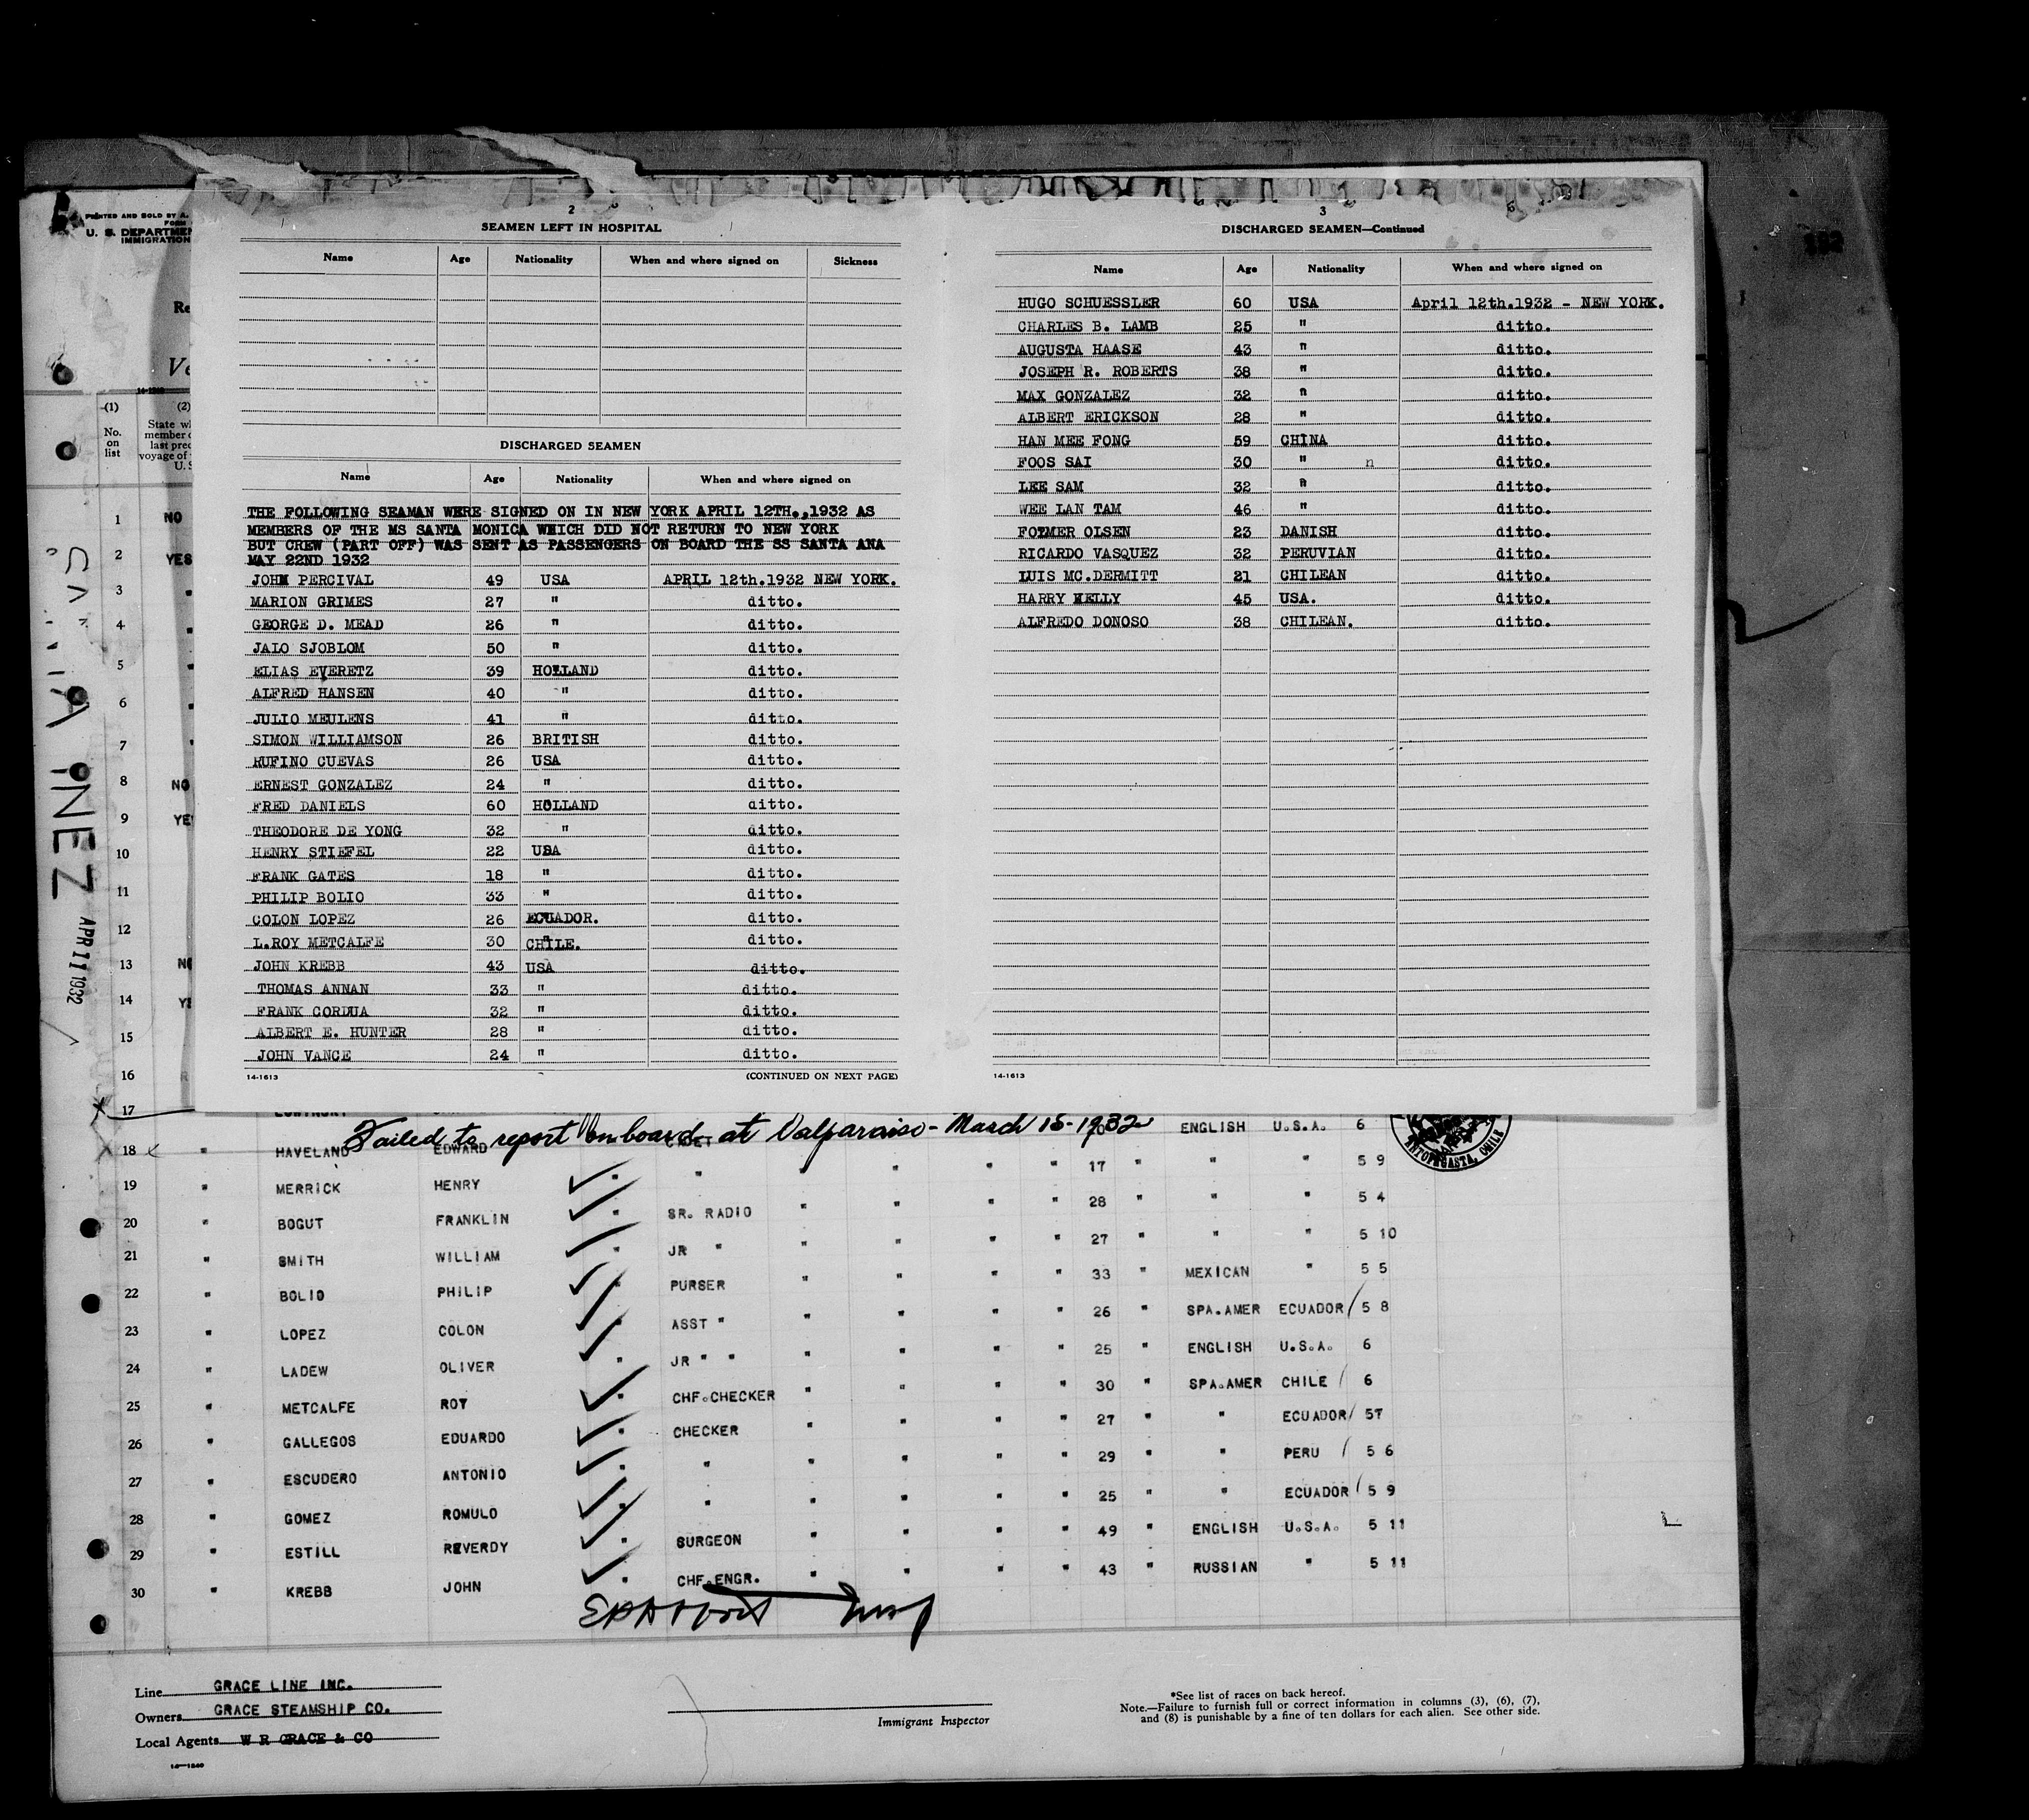 2
SEAMEN LEFT IN HOSPITAL
Name Age Nationality When and where signed on Sickness
DISCHARGED SEAMEN
Name Age Nationality When and where signed on
THE FOLLOWING SEAMAN WERE SIGNED ON IN NEW YORK APRIL 12TH.,1932 AS
MEMBERS OF THE MS SANTA MONICA WHICH DID NOT RETURN TO NEW YORK
BUT CREW (PART OFF) WAS SENT AS PASSENGERS ON BOARD THE SS SANTA ANA
MAY 22ND 1932
JOHN PERCIVAL 49 USA APRIL 12th.1932 NEW YORK.
MARION GRIMES 27 " ditto.
GEORGE D. MEAD 26 " ditto.
JALO SJOBLOM 50 " ditto.
ELIAS EVERETZ 39 HOLLAND ditto.
ALFRED HANSEN 40 " ditto.
JULIO MEULENS 41 " ditto.
SIMON WILLIAMSON 26 BRITISH ditto.
RUFINO CUEVAS 26 USA ditto.
ERNEST GONZALEZ 24 " ditto.
FRED DANIELS 60 HOLLAND ditto.
THEODORE DE YONG 32 " ditto.
HENRY STIEFEL 22 USA ditto.
FRANK GATES 18 " ditto.
PHILIP BOLIO 33 " ditto.
COLON LOPEZ 26 ECUADOR. ditto.
L.ROY METCALFE 30 CHILE. ditto.
JOHN KREBB 43 USA ditto.
THOMAS ANNAN 33 " ditto.
FRANK CORDUA 32 " ditto.
ALBERT E. HUNTER 28 " ditto.
JOHN VANCE 24 " ditto.
14-1613 (CONTINUED ON NEXT PAGE)
3
DISCHARGED SEAMEN—Continued
Name Age Nationality When and where signed on
HUGO SCHUESSLER 60 USA April 12th.1932 - NEW YORK.
CHARLES B. LAMB 25 " ditto.
AUGUSTA HAASE 43 " ditto.
JOSEPH R. ROBERTS 38 " ditto.
MAX GONZALEZ 32 " ditto.
ALBERT ERICKSON 28 " ditto.
HAN MEE FONG 59 CHINA ditto.
FOOS SAI 30 " ditto.
LEE SAM 32 " ditto.
WEE LAN TAM 46 " ditto.
FOLMER OLSEN 23 DANISH ditto.
RICARDO VASQUEZ 32 PERUVIAN ditto.
LUIS MC.DERMITT 21 CHILEAN ditto.
HARRY KELLY 45 USA. ditto.
ALFREDO DONOSO 38 CHILEAN. ditto.
14-1613
PRINTED AND SOLD BY A.
FORM
U. S. DEPARTMEN
IMMIGRATION
Re
Ve
(1) (2)
No. on list
State wh
member o
last prec
voyage of
U. S
INEZ APR 11 1932
1 NO
2 YES
3 "
4 "
5 "
6 "
7 "
8 NO
9 YE
10
11
12
13 NO
14 YE
15
16
17
Failed to report on board at Valparaiso - March 15-1932
ENGLISH U.S.A. 6
ANTOFAGASTA, CHILE
18 " HAVELAND EDWARD CADET
17 " " " 5 9
19 " MERRICK HENRY "
28 " " " 5 4
20 " BOGUT FRANKLIN SR. RADIO
27 " " " 5 10
21 " SMITH WILLIAM JR "
33 " MEXICAN " 5 5
22 " BOLIO PHILIP PURSER
26 " SPA.AMER ECUADOR 5 8
23 " LOPEZ COLON ASST "
25 " ENGLISH U.S.A. 6
24 " LADEW OLIVER JR " "
30 " SPA.AMER CHILE 6
25 " METCALFE ROY CHF.CHECKER
27 " " ECUADOR 57
26 " GALLEGOS EDUARDO CHECKER
29 " " PERU 5 6
27 " ESCUDERO ANTONIO "
25 " " ECUADOR 5 9
28 " GOMEZ ROMULO "
49 " ENGLISH U.S.A. 5 11
29 " ESTILL REVERDY SURGEON
43 " RUSSIAN " 5 11
30 " KREBB JOHN CHF.ENGR.
Line GRACE LINE INC.
Owners GRACE STEAMSHIP CO.
Local Agents W R GRACE & CO
Immigrant Inspector
*See list of races on back hereof.
Note.—Failure to furnish full or correct information in columns (3), (6), (7),
and (8) is punishable by a fine of ten dollars for each alien. See other side.